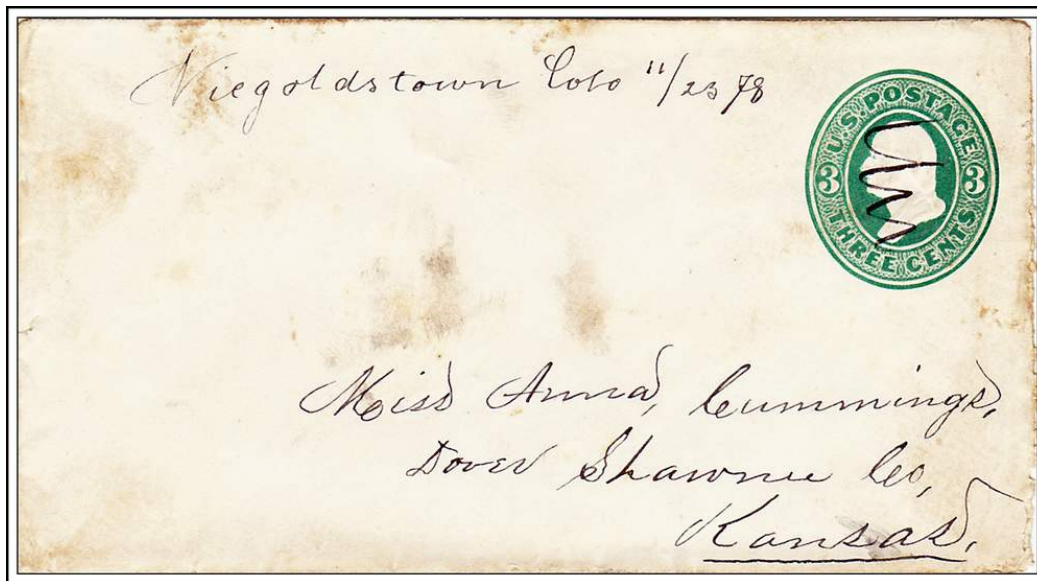 Niegoldstown Colo 11/23 78
U.S. POSTAGE
3 3
THREE CENTS
Miss Anna, Cummings,
Dover Shawnee Co,
Kansas,